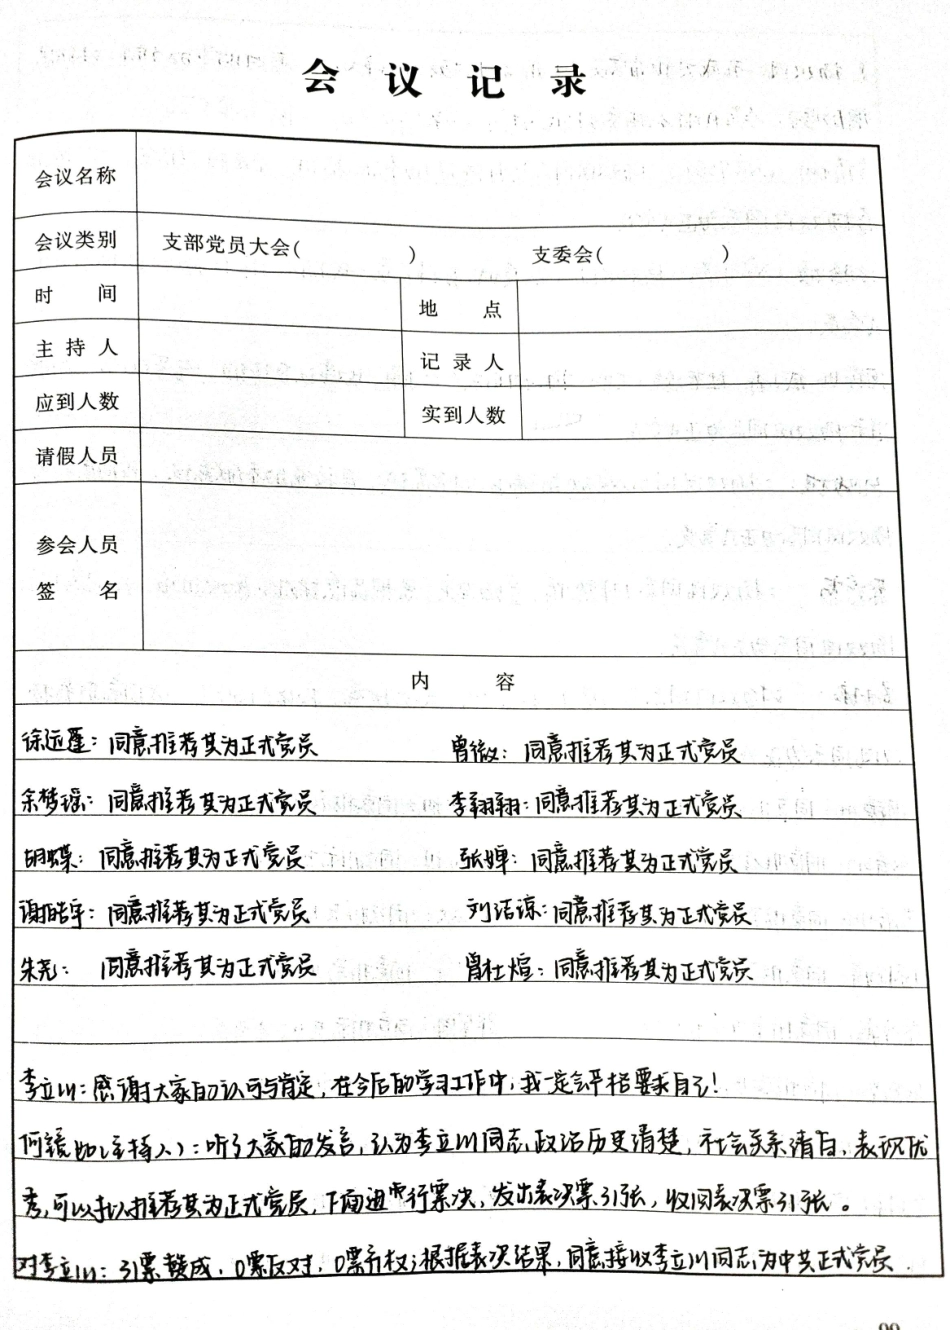 会议记录
会议名称
会议类别 支部党员大会( ) 支委会( )
时 间 地 点
主持人 记录人
应到人数 实到人数
请假人员
参会人员
签 名
内 容
徐远蓬：同意推荐其为正式党员 曾微：同意推荐其为正式党员
余梦瑶：同意推荐其为正式党员 李翔翔：同意推荐其为正式党员
胡蝶：同意推荐其为正式党员 张婵：同意推荐其为正式党员
谢皓宇：同意推荐其为正式党员 刘洁谅：同意推荐其为正式党员
朱尧：同意推荐其为正式党员 曾杜煊：同意推荐其为正式党员
李立川：感谢大家的认可与肯定，在今后的学习工作中，我一定会严格要求自己！
何镜如(主持人)：听了大家的发言，认为李立川同志政治历史清楚，社会关系清白，表现优
秀，可以推荐其为正式党员，下面进行票决，发出表决票31张，收回表决票31张。
对李立川：31票赞成，0票反对，0票弃权；根据表决结果，同意接收李立川同志为中共正式党员.
99